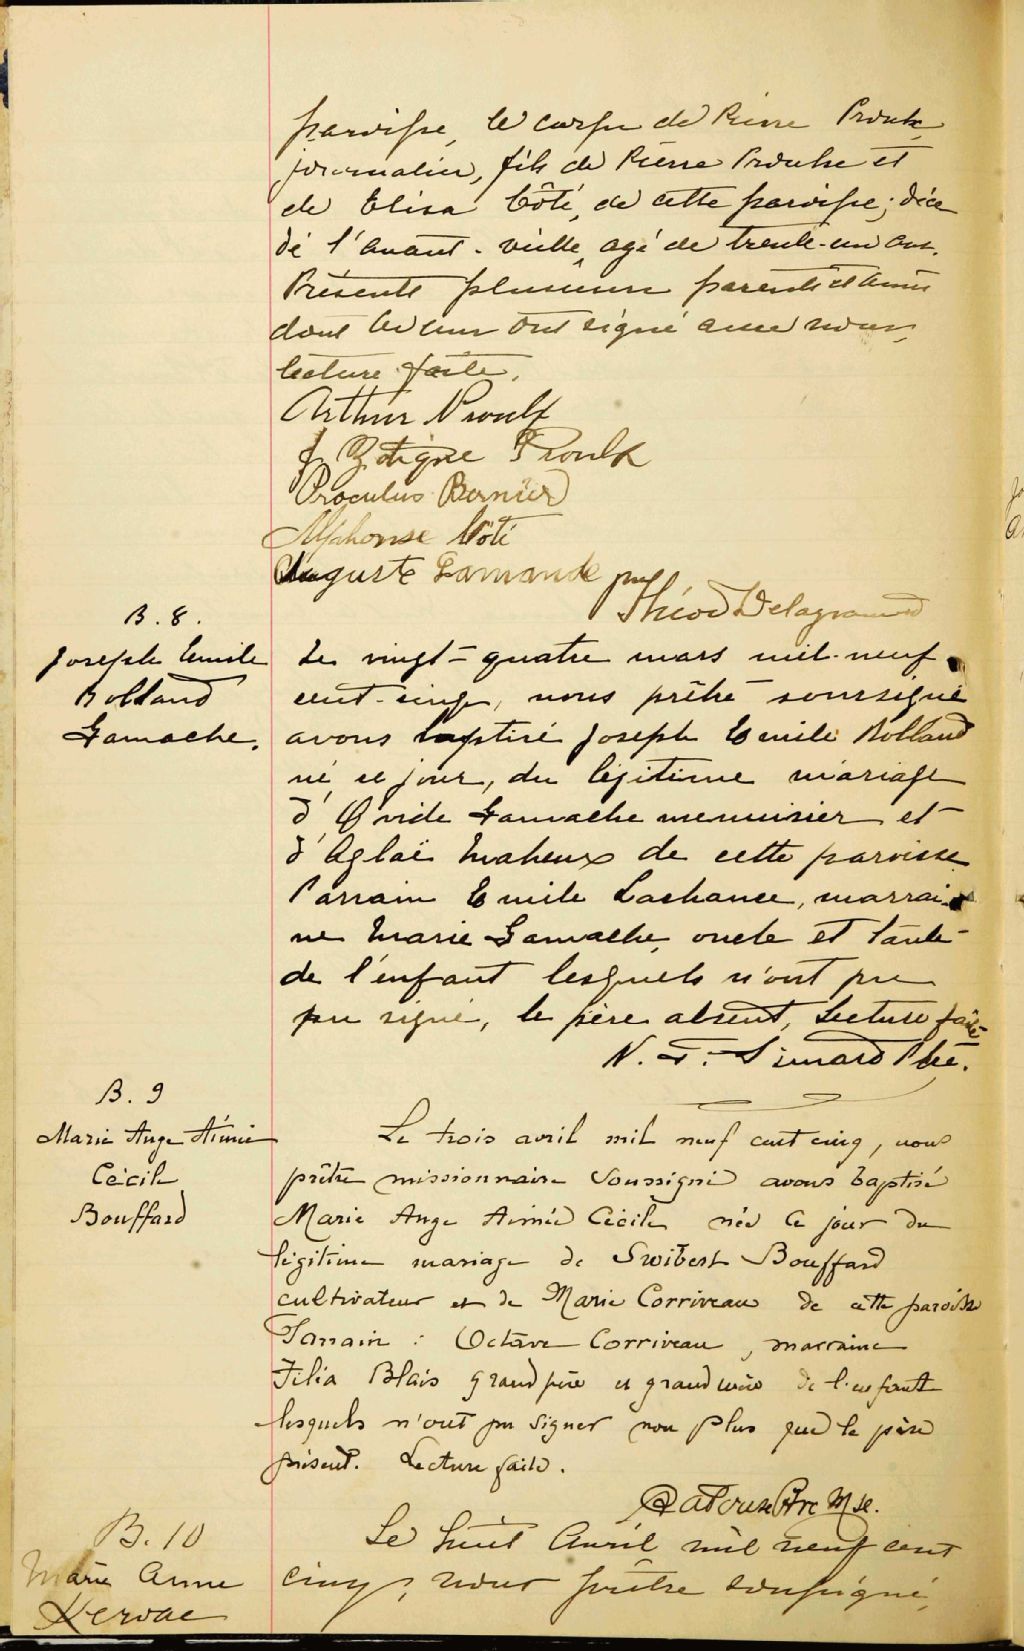 paroisse, le corps de Pierre Proulx,
journalier, fils de Pierre Proulx et
de Elisa Côté, de cette paroisse; décé
dé l'avant-veille, agé de trente-un ans.
Présents plusieurs parents et amis
dont les uns ont signé avec nous,
lecture faite.
Arthur Proulx
J. Zotique Proulx
Proculus Bernier
Alphonse Côté
Auguste Lamonde
Théod Delagrave
B. 8.
Joseph Emile
Rolland
Gamache.
Le vingt-quatre mars mil-neuf
cent-cinq, nous prêtre soussigné
avons baptisé Joseph Emile Rolland
né ce jour, du légitime mariage
d'Ovide Gamache menuisier et
d'Aglaë Maheux de cette paroisse
Parrain Emile Lachance, marrai-
ne Marie Gamache, oncle et tante
de l'enfant lesquels n'ont pu
pu signé, le père absent, Lecture faite
N. F. Simard Ptre.
B. 9
Marie Ange Aimée
Cécile
Bouffard
Le trois avril mil neuf cent cinq, nous
prêtre missionnaire soussigné avons baptisé
Marie Ange Aimée Cécile née ce jour du
légitime mariage de Swibert Bouffard
cultivateur et de Marie Corriveau de cette paroisse
Parrain : Octave Corriveau, marraine
Filia Blais grand père et grand mère de l'enfant
lesquels n'ont pu signer non plus que le père
présent. Lecture faite.
Ptre Mse.
B. 10
Marie Anne
Kerouac
Le huit Avril mil neuf cent
cinq, nous prêtre soussigné,